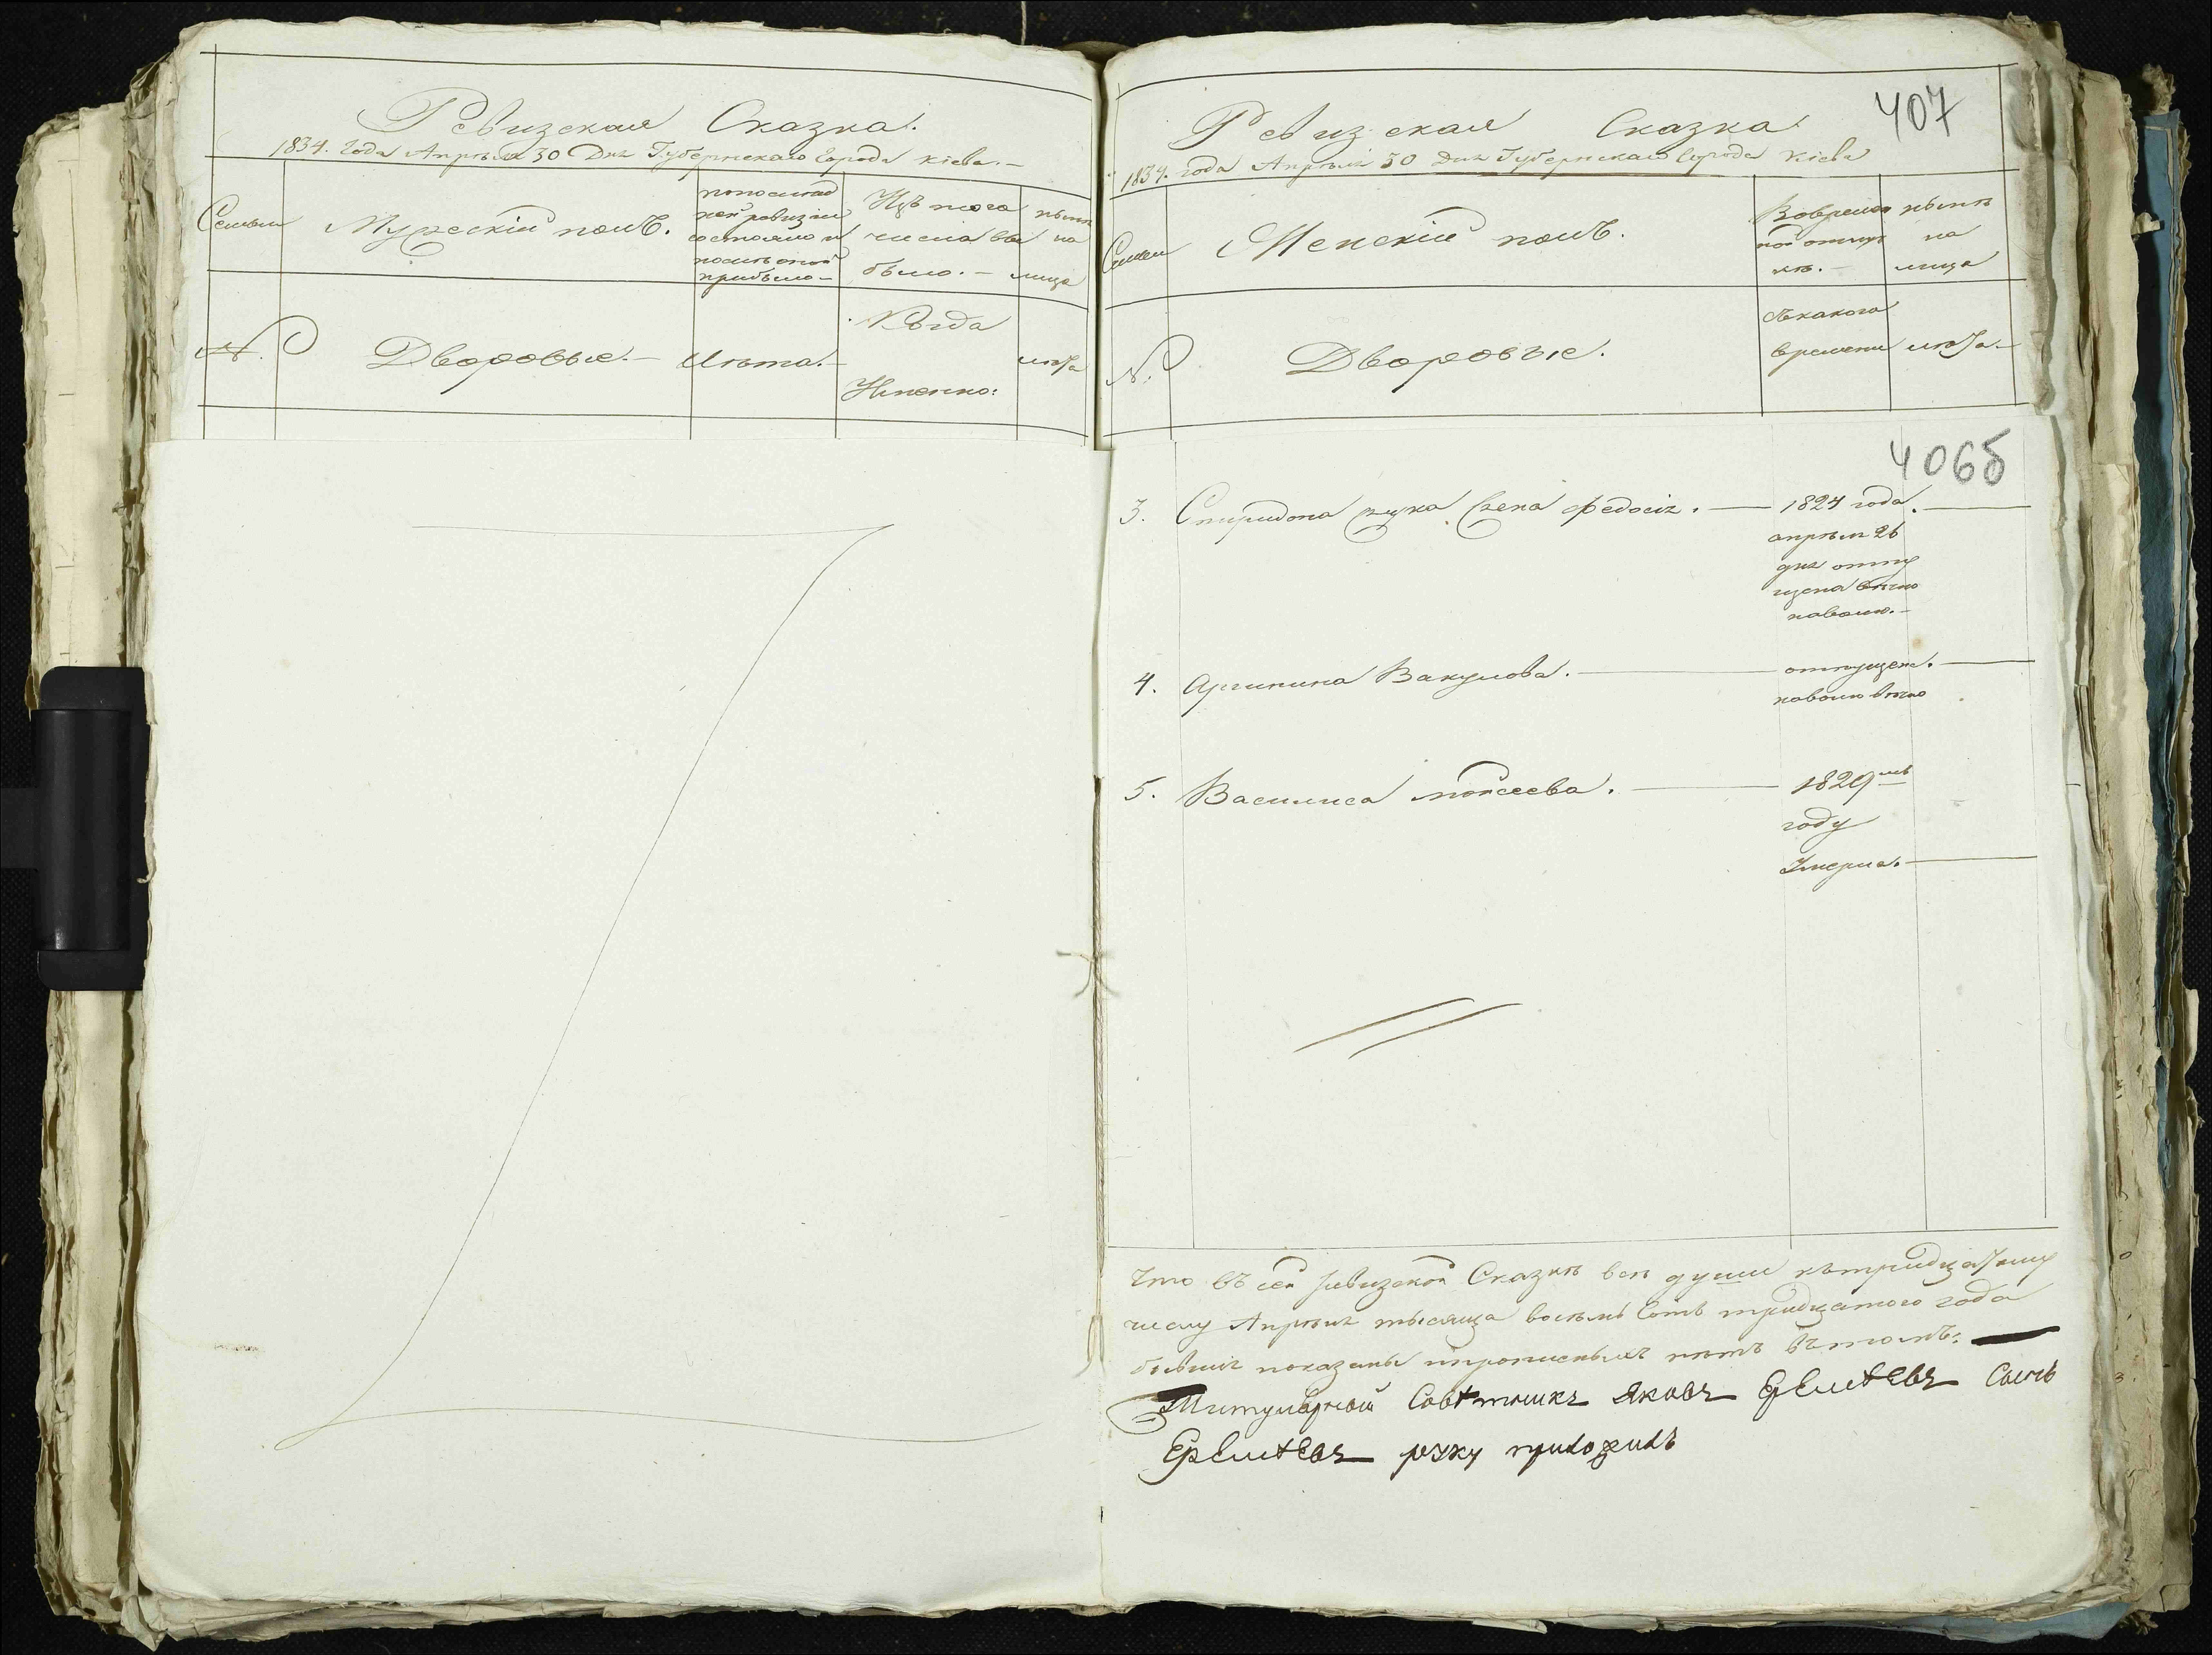 Ревизская Сказка.
1834. года Апрѣля 30 Дня Губернскаго Города Кіева. —
Семьи
Мужескій полъ.
по послѣд
ней ревизіи
состояло и
послѣ оной
прибыло —
Изъ того
числа вы
было. —
нынѣ
на
лицо
№.
Дворовые. —
Лѣта. —
Когда
Имянно:
лѣта
Ревизская Сказка
407
1834. года Апрѣля 30 Дня Губернскаго Города Кіева
Семьи
Женскій полъ.
Вовремян
ной отлуч
кѣ. —
нынѣ
на
лицо
№.
Дворовые.
Съ какого
времени
лѣта. —
406б
3. Спиридона жена Федосія. — 1824 года. —
апрѣля 26
дня отпу
щена вѣчно
наволю. —
4. Агрипина Вакулова. — отпущена. —
наволю вѣчно
5. Василиса моисеева. — 1829мъ
году
Умерла. —
Что въ сей ревизской Сказкѣ всѣ души кътридцатому
числу Апрѣля тысяща восѣмь Сотъ тридцатого года
бывшіе показаны ипрописныхъ нѣтъ вътомъ: —
Титулярной Совѣтникъ Яковъ Ермѣевъ Сынъ
Еремѣевъ руку приложилъ